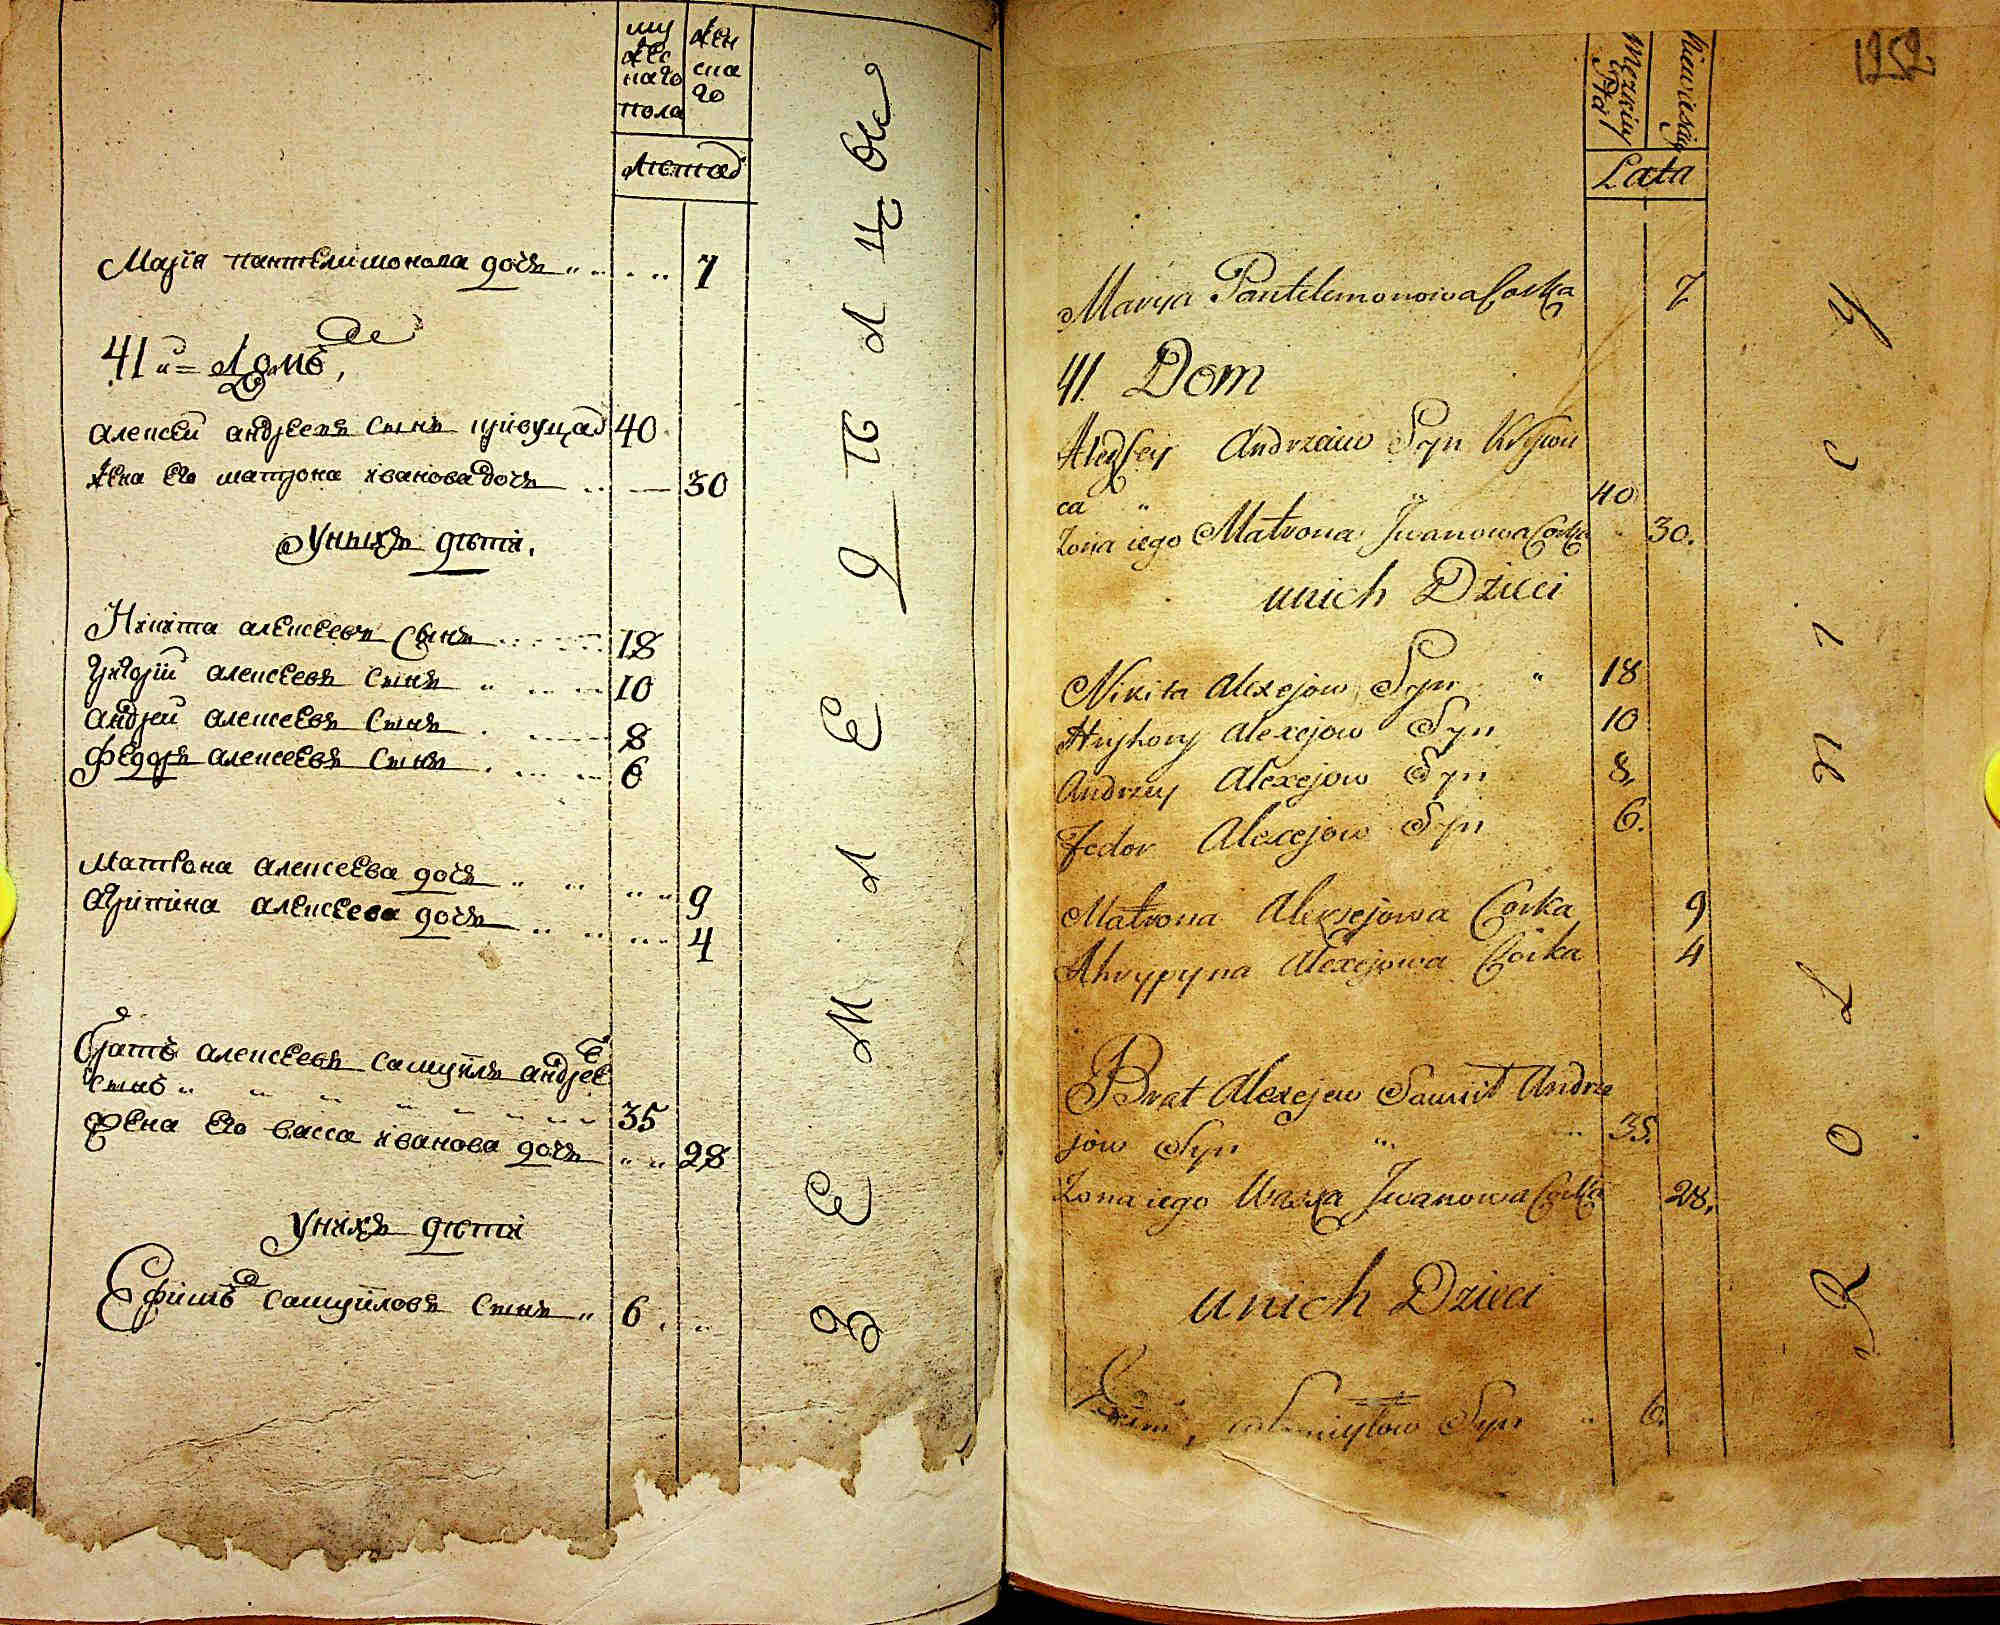 му
жес
каго
пола
жен
ска
го
летад
Марія пантелимонова дочъ 7
41 й = Домъ,
алексей андреевъ сынъ кривуцад 40
жена его матрона иванова дочъ 30
Унихъ дѣти.
Никита алексеевъ сынъ 18
григорій алексеевъ сынъ 10
андрей алексеевъ сынъ 8
федоръ алексеевъ сынъ 6
матрона алексеева дочъ 9
агрипина алексеева дочъ 4
братъ алексеевъ самуилъ андрее
сынъ 35
жена его васса иванова дочъ 28
Унихъ дѣти
Ефимъ самуиловъ сынъ 6
З Е М Л Е
1252
Męzkiey
Płci
Niewiesciy
Lata
Maryia Pantelemonowa Corka 7
41 Dom
Alexsey Andrzeiuw Syn Krywu
ca 40
Zona iego Matrona Jwanowa Corka 30.
unich Dzieci
Nikita Alexejow Syn 18
Hryhory Alexejow Syn 10
Andrzey Alexejow Syn 8,
Fedor Alexejow Syn 6.
Matrona Alexsejowa Corka 9
Ahrypyna Alexejowa Corka 4
Brat Alexejew Samuit Andrze
jow Syn 35.
Zona iego Wassa Jwanowa Corka 28,
unich Dzieci
Syn 6.